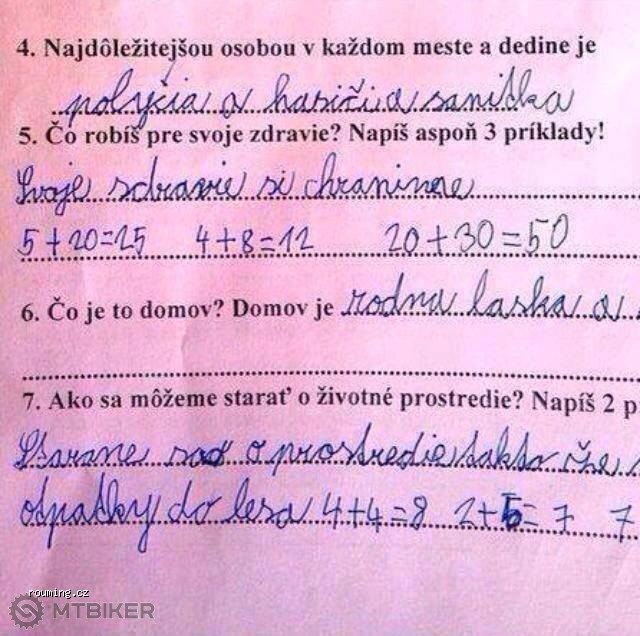 4. Najdôležitejšou osobou v každom meste a dedine je
polycia a hasiči a sanitka
5. Čo robíš pre svoje zdravie? Napíš aspoň 3 príklady!
Svoje sdravie si chranime
5+20=25 4+8=12 20+30=50
6. Čo je to domov? Domov je rodna laska a
7. Ako sa môžeme starať o životné prostredie? Napíš 2 p
Starame sa o prostredie takto že
odpatky do lesa 4+4=8 2+5=7 7
rouming.cz
MTBIKER